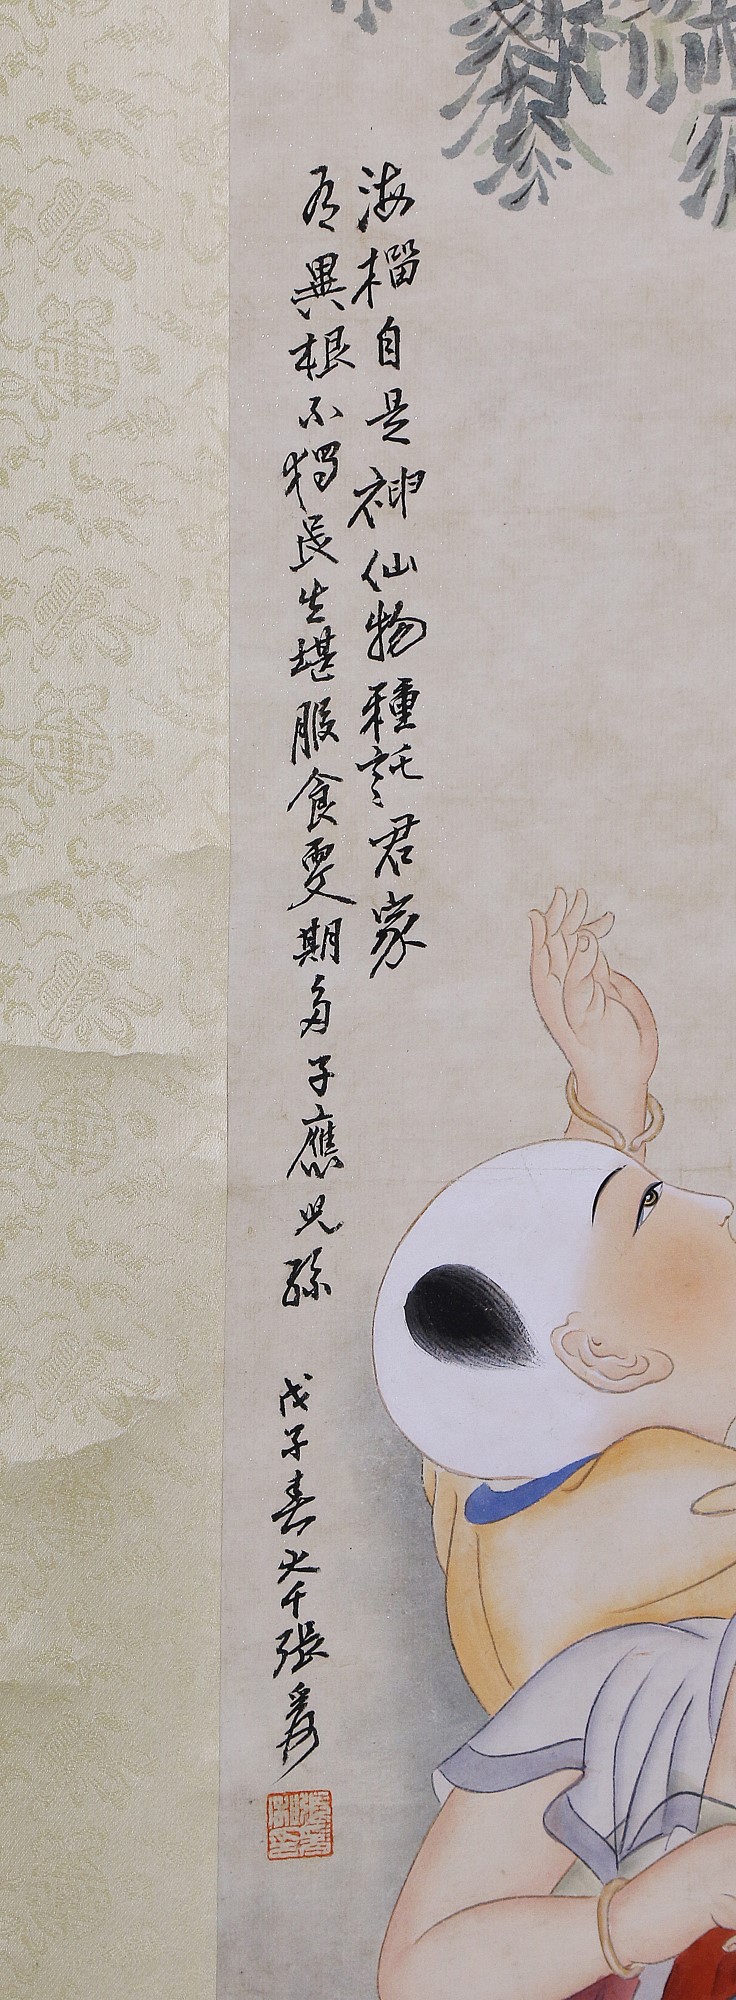 海榴自是神仙物種託君家
有異根不獨長生堪服食更期多子應兒孫
戊子春大千張爰